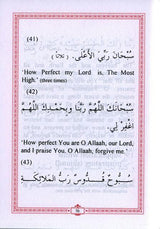 (41)
سُبْحَانَ رَبِّيَ الأَعْلَى. (ثلاثاً)
'How Perfect my Lord is, The Most
High.' (three times)
(42)
سُبْحَانَكَ اللَّهُمَّ رَبَّنَا وَبِحَمْدِكَ اللَّهُمَّ
اغْفِرْ لِي.
'How perfect You are O Allaah, our Lord,
and I praise You. O Allaah, forgive me.'
(43)
سُبُّوحٌ قُدُّوسٌ رَبُّ المَلَائِكَةِ